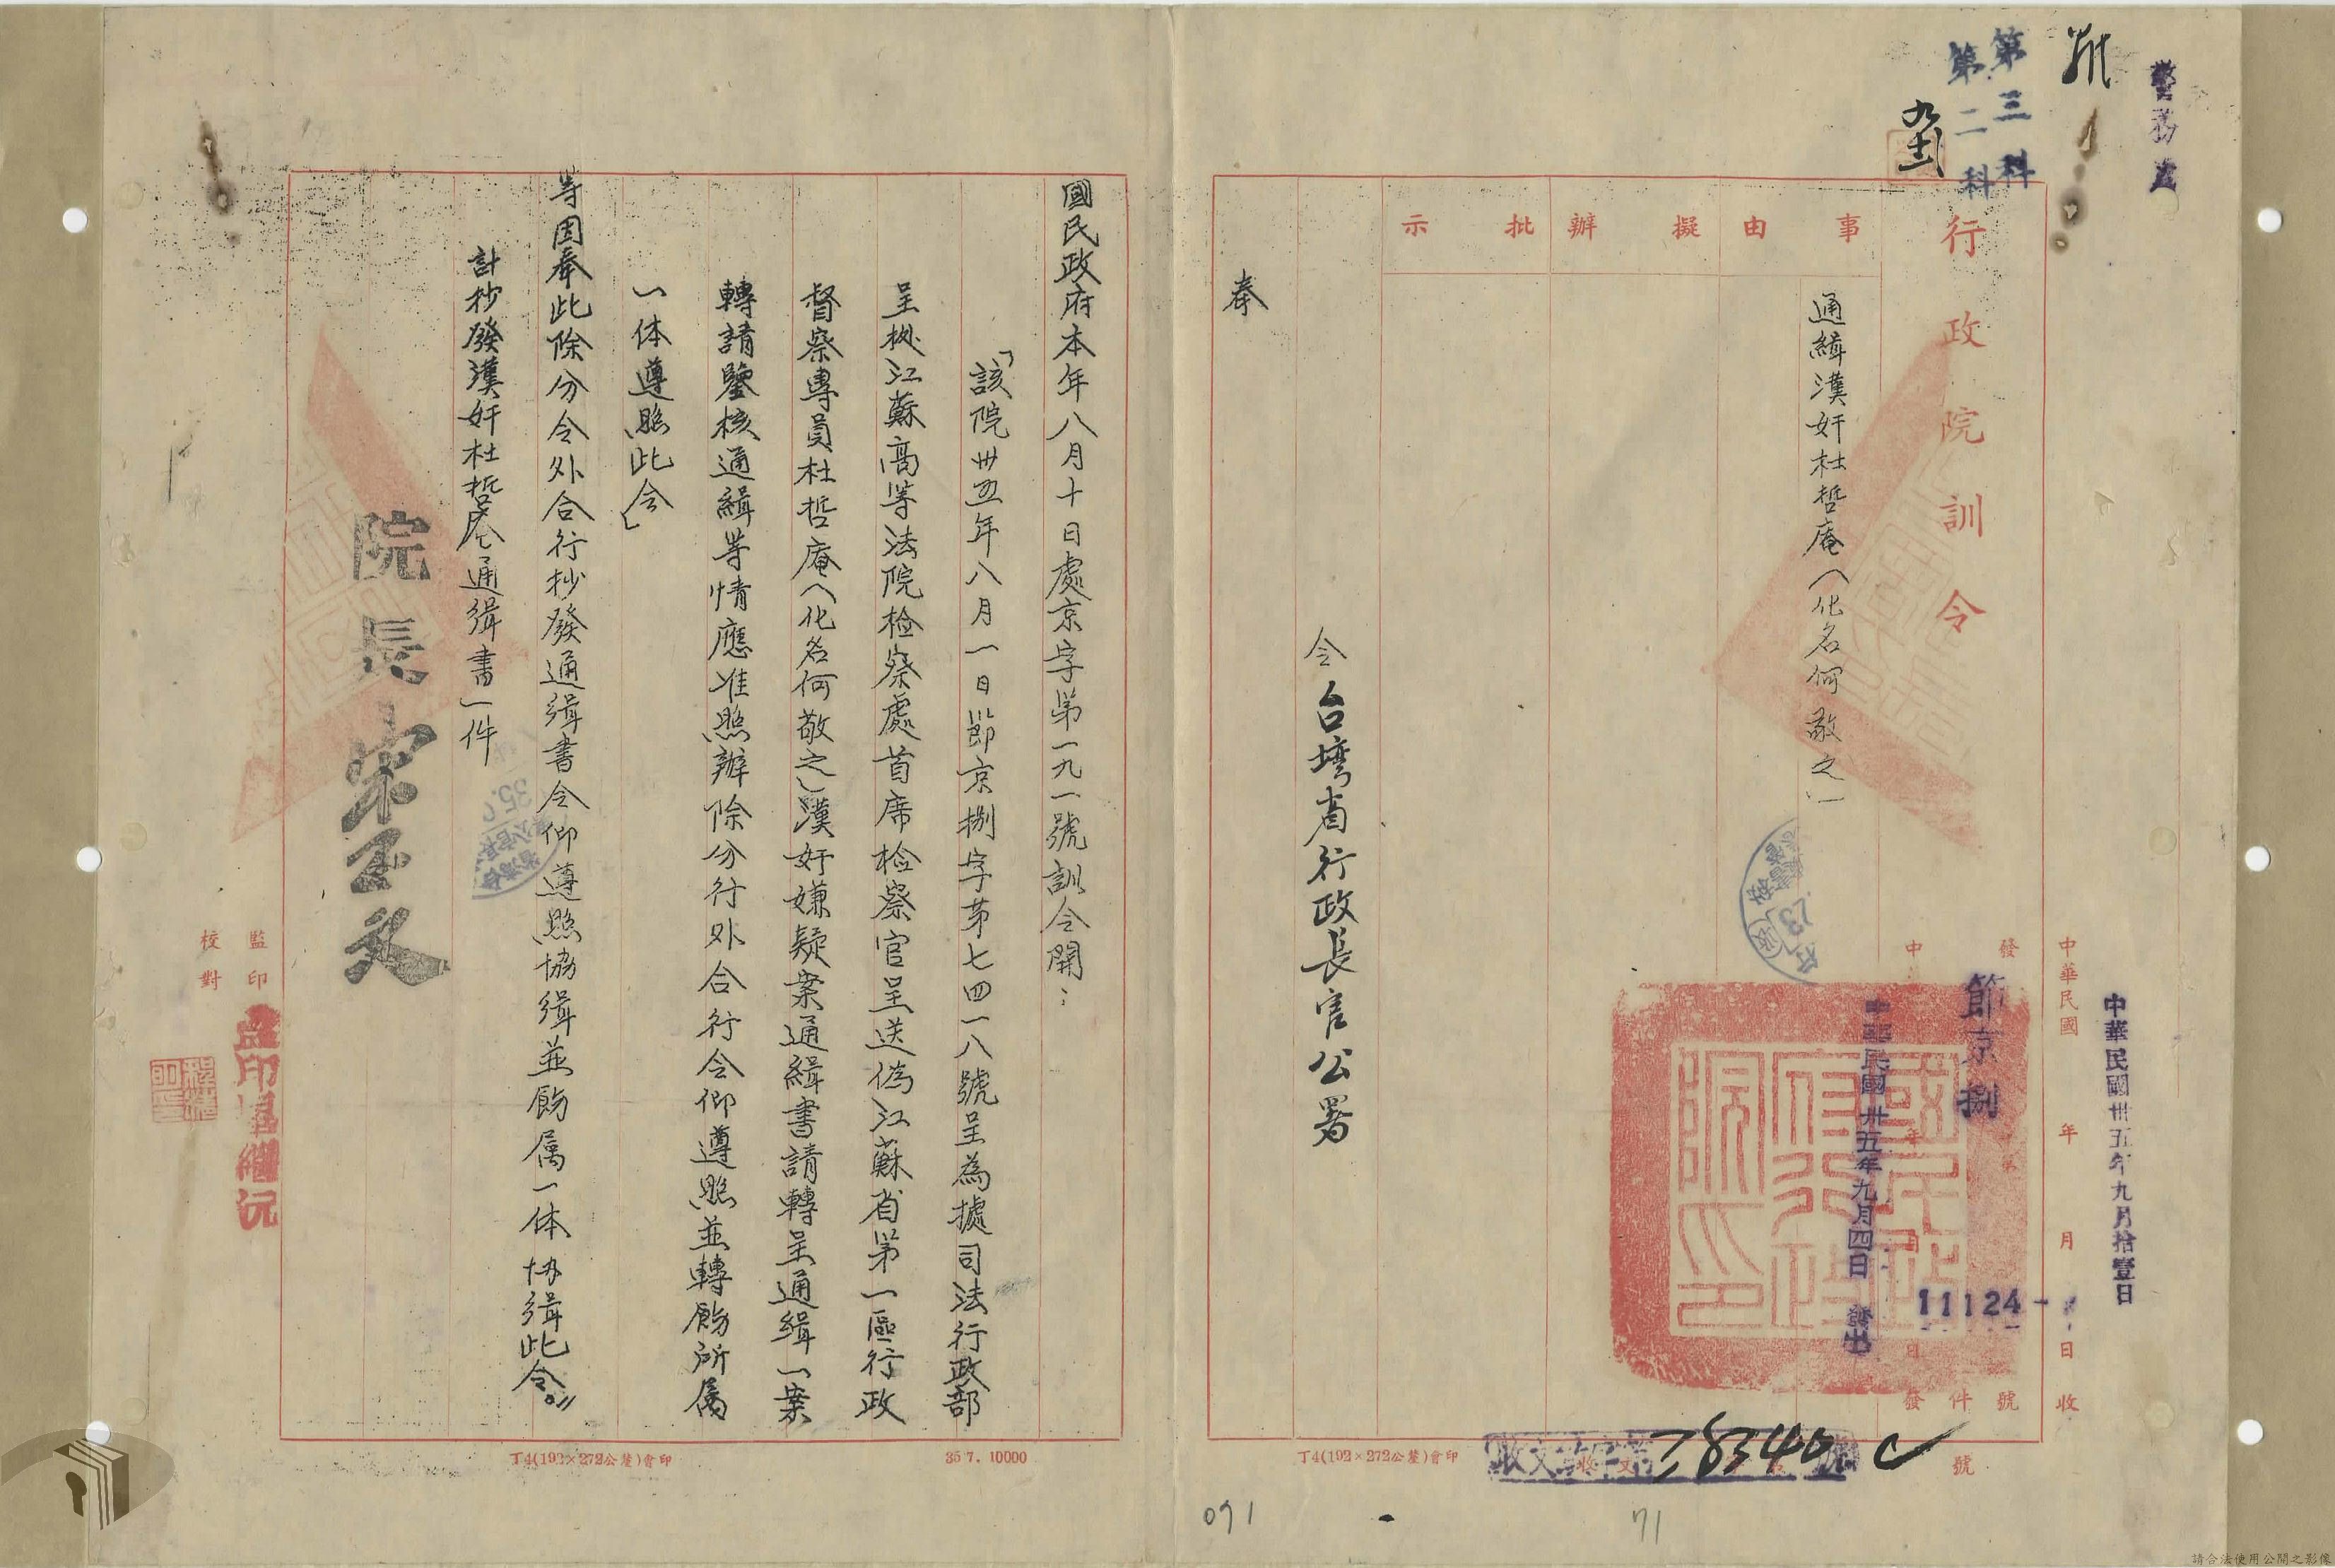 警務處
第三科
第二科
行政院訓令
事由
擬辦
批示
通緝漢奸杜哲庵(化名何敬之)
中華民國卅五年九月拾壹日
中華民國 年 月 日收
發
節京捌
11124
號
中華民國卅五年九月四日發出
件
發
令台灣省行政長官公署
奉
號
丁4(192×272公釐)會印
國民政府本年八月十日處京字第一九一號訓令開:
「該院卅五年八月一日節京捌字第七四一八號呈為據司法行政部
呈拠江蘇高等法院检察處首席检察官呈送偽江蘇省第一區行政
督察專員杜哲庵(化名何敬之)漢奸嫌疑案通緝書請轉呈通緝一案
轉請鑒核通緝等情應准照辦除分行外合行令仰遵照並轉飭所属
一体遵照此令」
等因奉此除分令外合行抄發通緝書令仰遵照協緝並飭属一体協緝此令。
計抄發漢奸杜哲庵通緝書一件
院長宋子文
監印
校對
35 7. 10000
丁4(192×272公釐)會印
091
71
請合法使用公開之影像